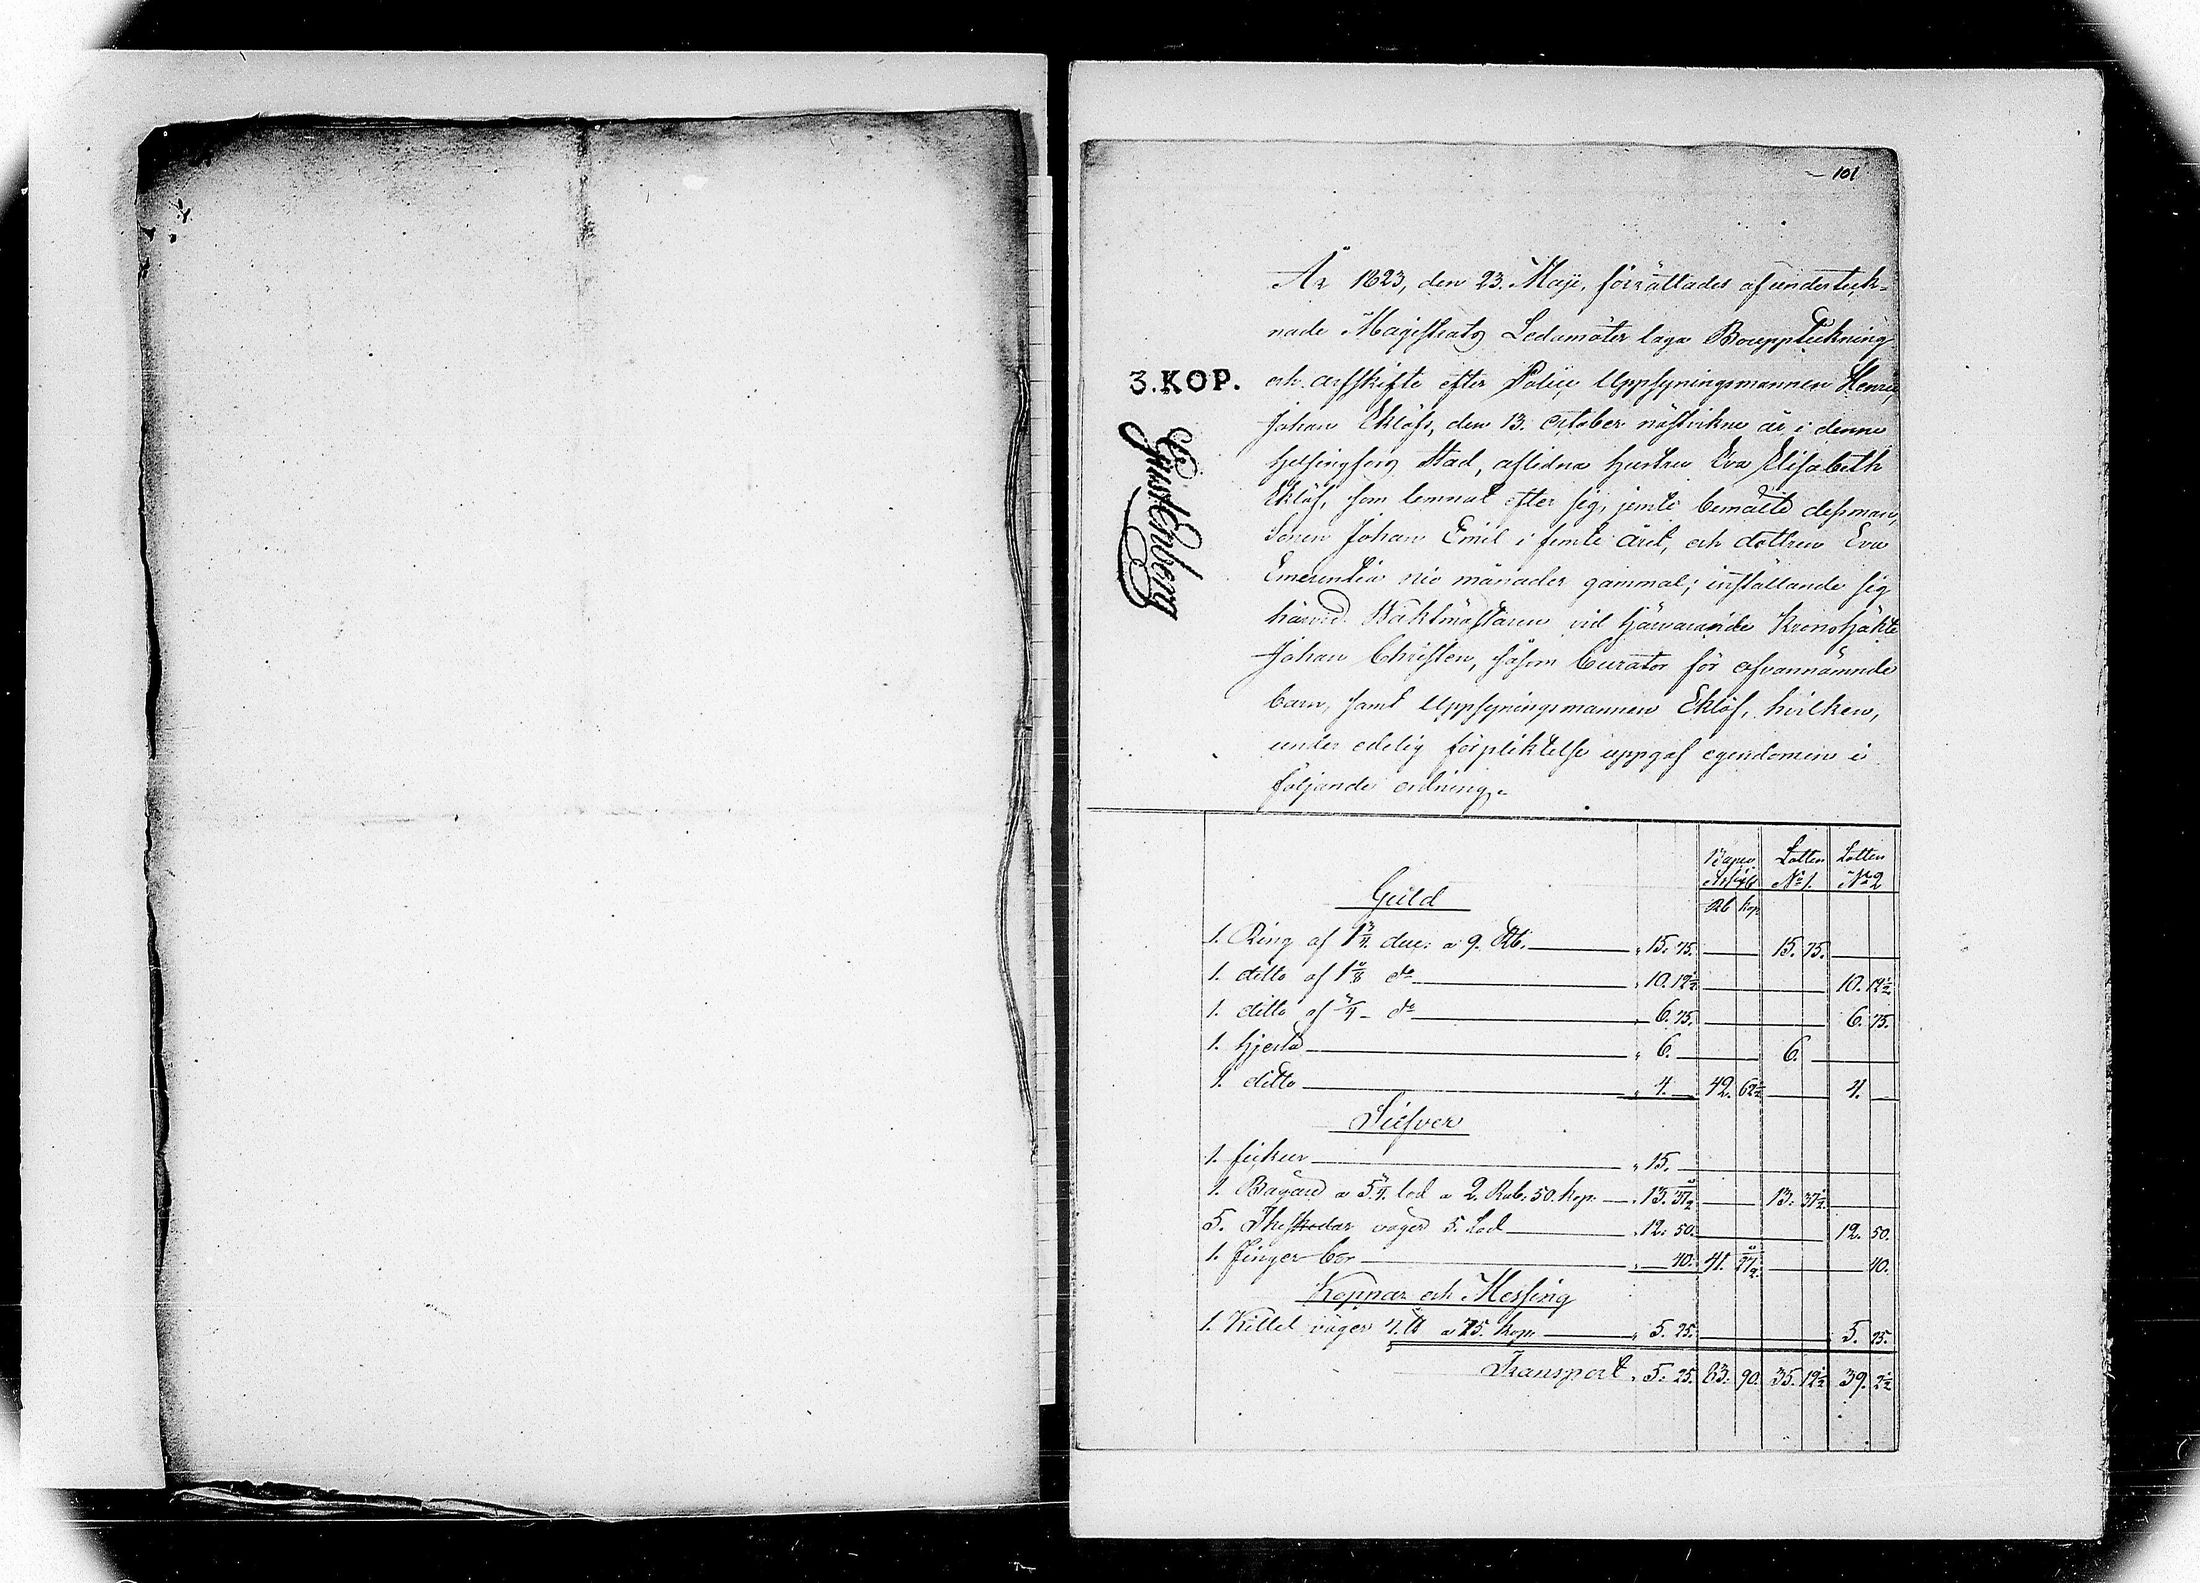 101
År 1823, den 23. Maji, förrättades af underteck-
nade Magistrats Ledamöter laga Bouppteckning
3.KOP. och arfskifte efter Police Uppsyningsmannen Henric
Johan Eklöfs, den 13. october nästvikne år i denne
Helsingfors Stad, aflidna hustru Eva Elisabeth
Eklöf, som lemnat efter sig, jemte bemälte dess man,
Sonen Johan Emil i femte året, och dottren Eva
Emerentia nio månader gammal; inställande sig
härvid Vaktmästaren vid härvarande Kronohäkte
Johan Christen, såsom Curator för ofvannämnde
barn, samt Uppsyningsmannen Eklöf, hvilken,
under edelig förpliktelse uppgaf egendomen i
följande ordning.
Lotten Lotten
No 1. No 2
Rb kop.
Guld
1. Ring af 1 3/4 duc: a 9. Rb. 15. 75. 15. 75.
1. ditto af 1 1/8 do 10. 12 1/2 10. 12 1/2
1. ditto af 3/4 do 6. 75. 6. 75.
1. hjerta 6. 6.
1. ditto 4. 42. 62 1/2 4.
Silfver
1. fickur 15.
1. Bägare 5 lod a 2. Rub. 50. kop. 13. 37 1/2 13. 37 1/2
5. Theskedar väger 5. Lod 12. 50. 12. 50.
1. Finger bor 40. 41. 27 1/2 40.
Koppar och Messing
1. Kittel väger 7. ℔ a 75. kop. 5. 25. 5. 25.
Transport 5. 25. 83. 90. 35. 12 1/2 39. 2 1/2